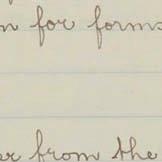 for forms
from the